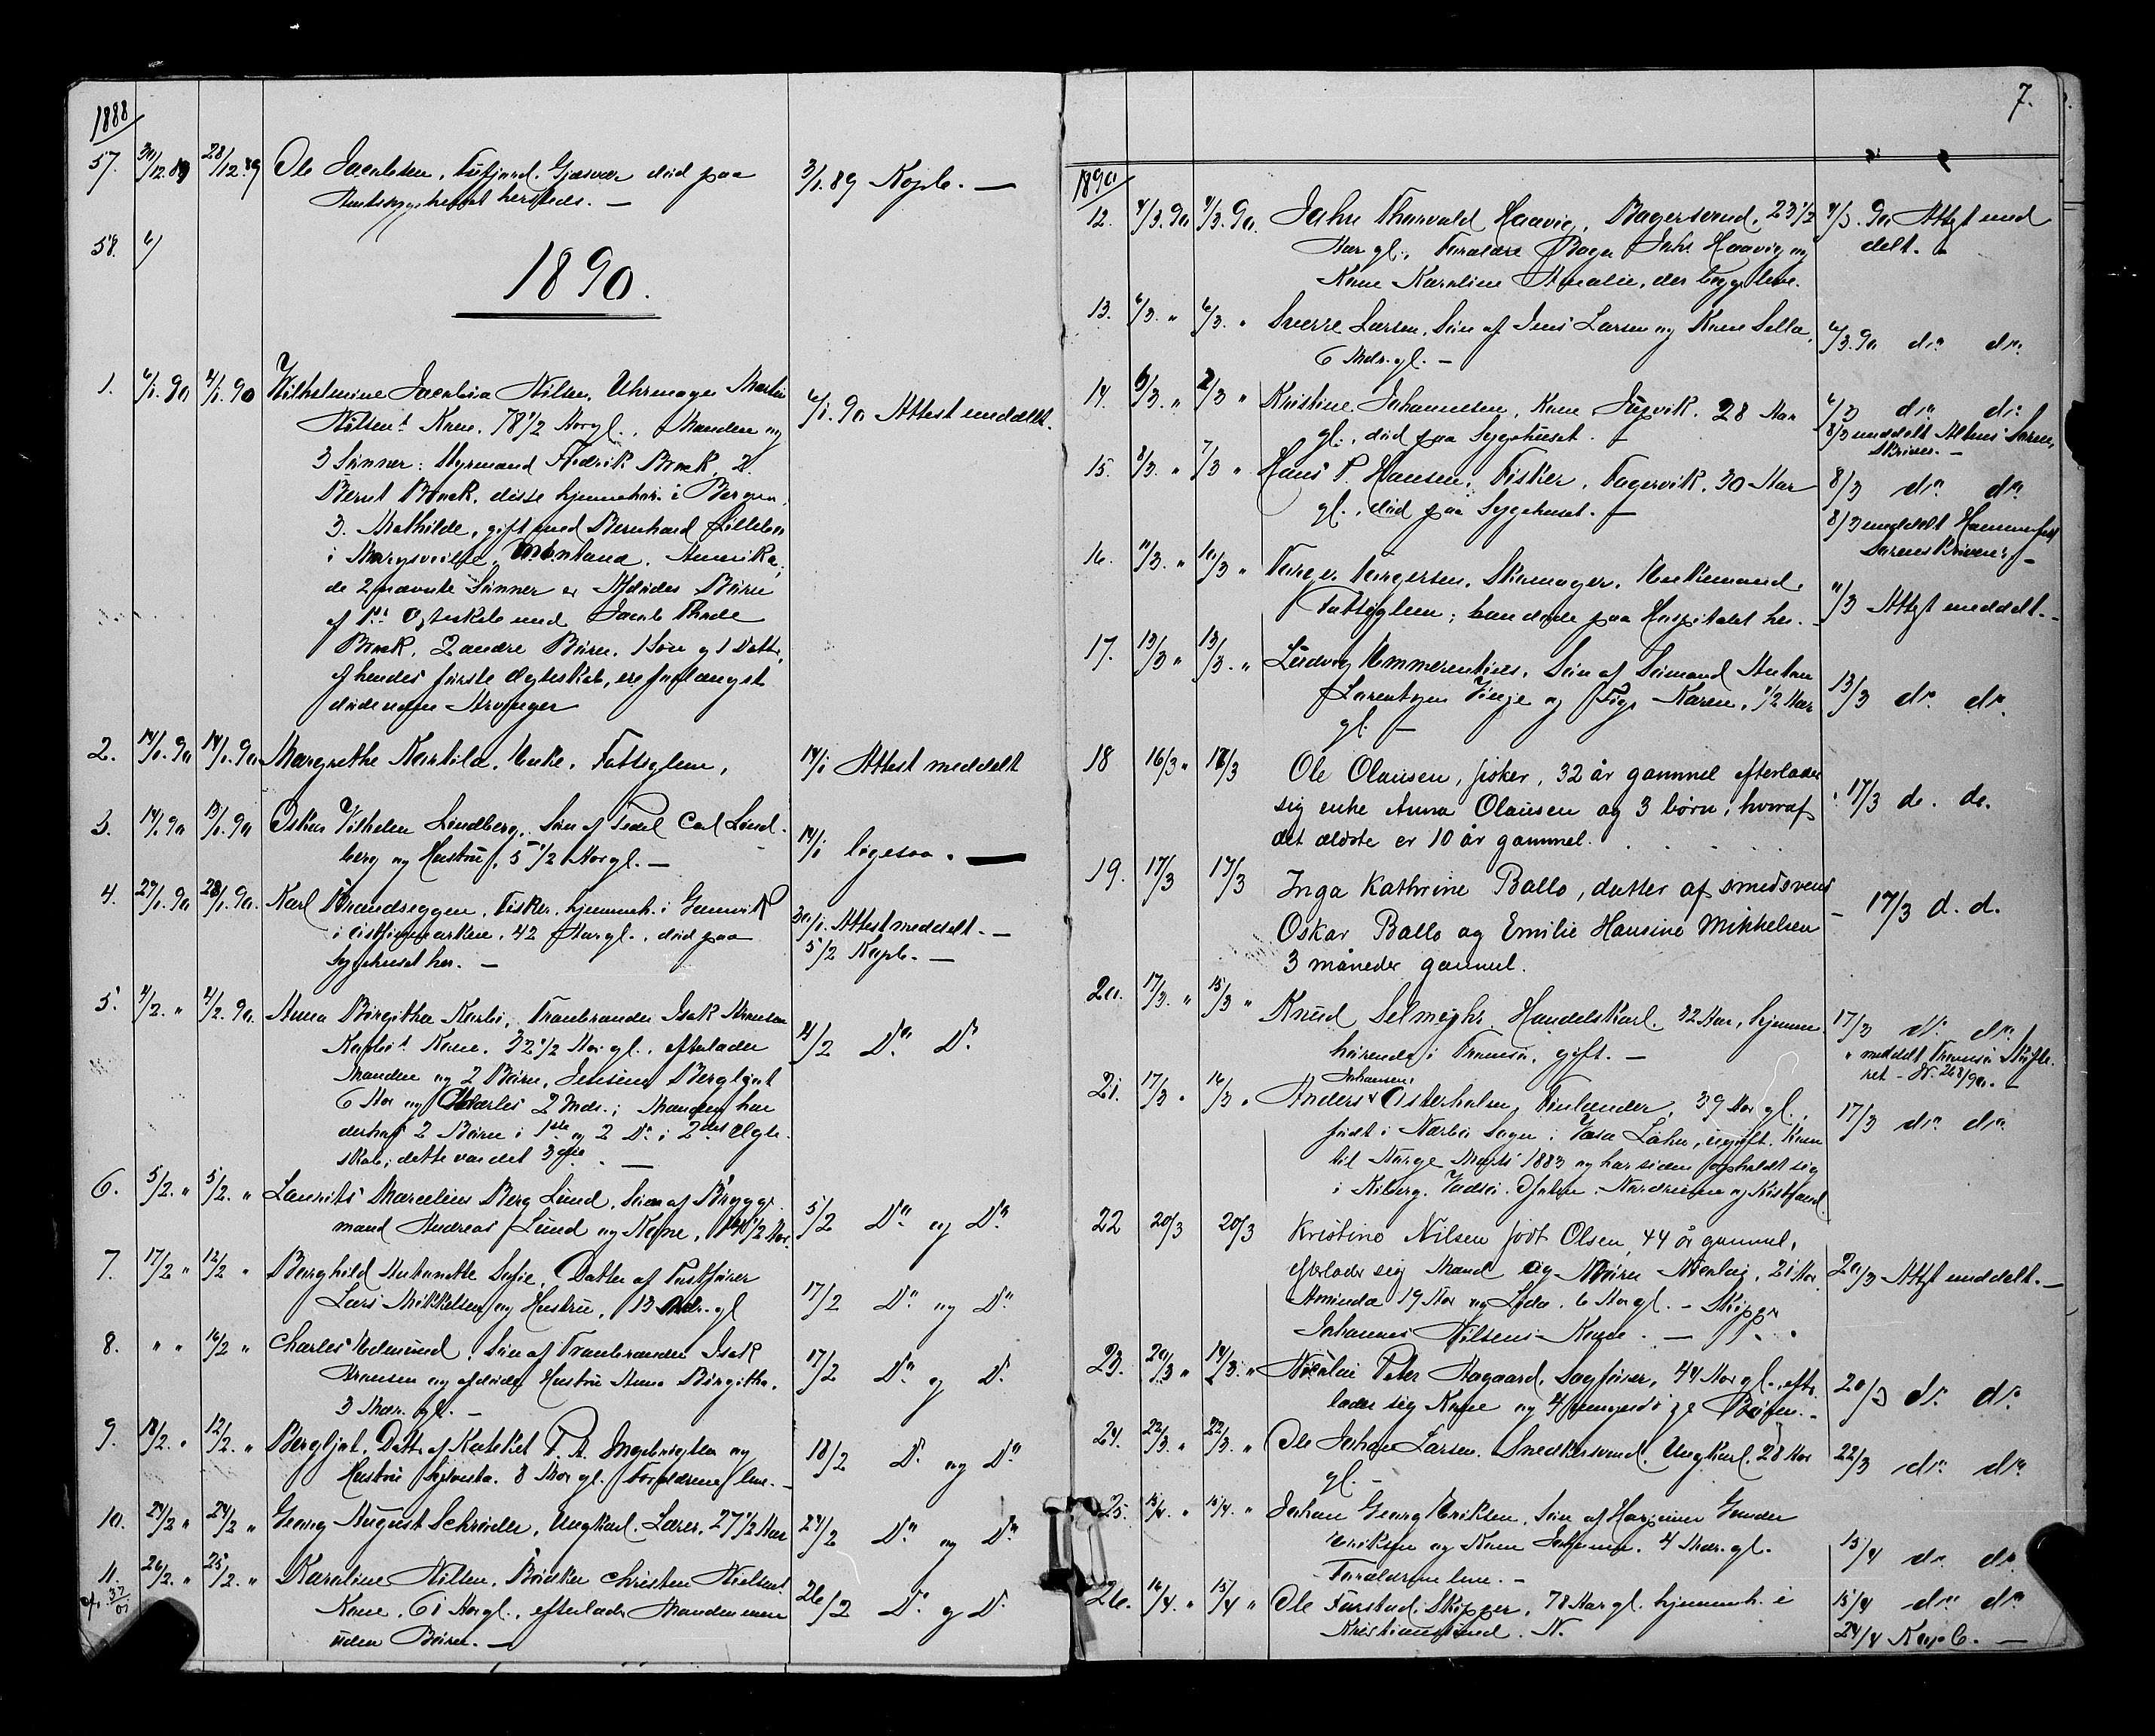 1888
57. 30/12.89 28/12.89 Ole Jacobsen, Tufjord, Gjæsvær død paa 3/1.89 Kopb. —
Amtssygehuset hersteds. —
58. 6/
1890.
1. 6/1.90 4/1.90 Wilhelmine Jacobia Nilsen, Uhrmager Martin
Nilsens Kone, 78 1/2 Aar gl., Manden og 6/1.90 Attest meddelt.
3 Sønner: Styrmand Fredrik Brock, 2.
Bernt Brock, disse hjemmehør. i Bergen,
3. Mathilde, gift med Bernhard
i Marysville, Montana, Amerika,
de 2 nævnte Sønner er Afdødes Børn
af 1ste Ægteskab med Jacob
Brock, 2 andre Børn, 1 Søn og 1 Datter,
af hendes første Ægteskab, ere forlængst
døde uden Arvinger
2. 14/1.90 14/1.90 Margrethe Kartila, Enke, Fattiglem, 14/1 Attest meddelt
3. 14/1.90 13/1.90 Oskar Vilhelm Lindberg, Søn af Carl Lind-
berg og Hustru, 5 1/2 Aar gl. — 14/1 ligesaa. —
4. 29/1.90 28/1.90. Karl Brandseggen, Fisker, hjemmeh. i Gamvik
i Østfinmarken, 42 Aar gl., død paa 30/1 Attest meddelt. —
Sygehuset her. — 5/2 Kopb. —
5. 4/2. " 4/2.90. Anna Birgitha Karbø, Tranbrænder Isak Aronsen
Karbøs Kone, 32 1/2 Aar gl., efterlader 4/2 Do Do
Manden og 2 Børn, Jensine Bergljot
6 Aar og Charles 2 Mdr.; Manden har
derhos 2 Børn i 1ste og 2 Do i 2det Ægte-
skab; dette var det 3die. —
6. 5/2. " 5/2. " Laurits Marcelius Berg Lund, Søn af Brygge-
mand Andreas Lund og Kone, 1/2 Aar. 5/2 Do og Do
7. 17/2 " 12/2 " Borghild Antonette Sofie, Datter af Postfører
Lars Mikkelsen og Hustru, 13 Mdr. gl 17/2 Do og Do
8. " " 16/2 " Charles Edmund, Søn af Tranbrænder Isak
Aronsen og afdøde Hustru Anna Birgitha, 17/2 Do og Do
3 Mdr. gl. —
9. 18/2. " 12/2. " Bergljot, Datt. af Kateket F. A. Ingebrigtsen og
Hustru Sylvesta, 8 Aar gl. Forældrene leve. — 18/2 Do og Do
10. 24/2 " 24/2 " Georg August Schrøder, Ungkarl, Lærer, 27 1/2 Aar 24/2 Do og Do
11. 26/2. " 25/2. " Karoline Nilsen, Bødker Christen Nielsens
cfr. 37/01 Kone, 61 Aar gl., efterlader Manden men 26/2 Do og Do
uden Børn. —
7.
1890
12. 4/3.90 4/3.90. John Thorvald Haavig, Bagersvend, 23 1/2 4/3.90 Attest med
Aar gl., Forældre Bager Johs. Haavig og delt. —
Kone Karoline Amalie, der begge leve.
13. 6/3. " 6/3. " Sverre Larsen, Søn af Jens Larsen og Kone Sella,
6 Mdr. gl. — 6/3.90 do. do.
14. 6/3. " 2/3 " Kristine Johannesen, Kone Jupvik, 28 Aar 6/3 do. do.
gl., død paa Sygehuset. — 8/3 meddelt Altens Soren-
skriver. —
15. 8/3. " 7/3 " Hans P. Hansen, Fisker, Fagervik, 30 Aar 8/3 do. do.
gl., død paa Sygehuset. — 8/3 meddelt Hammerfest
Sorenskriveri —
16. 11/3. " 10/3 " Torger Torgersen, Skomager, Enkemand,
Fattiglem; han døde paa Hospitalet her. — 11/3 Attest meddelt. —
17. 13/3 " 13/3. " Ludvig Emmerentius, Søn af Sømand Anton
Larentzen Vinje og Pige Karen, 1/2 Aar 13/3 do. do.
gl. —
18 16/3 " 16/3 Ole Olausen, fisker, 32 år gammel efterlader
sig enke Anna Olausen og 3 børn; hvoraf 17/3 do. do.
det ældste er 10 år gammel.
19. 17/3 17/3 Inga Kathrine Ballo, datter af smedsvend
Oskar Ballo og Emilie Hansine Mikkelsen — 17/3 d. d.
3 måneder gammel.
20. 17/3. " 15/3 " Knud Selmer Handelskarl, 32 Aar, hjemme- 17/3 do. do.
hørende i Tromsø, gift. — " meddelt Tromsø Skifte-
ret - N. 268/90. —
21. 17/3 " 16/3 " Anders Johansen Østerholm, Finlænder, 39 Aar gl., 17/3 do. do.
født i Nærbø Sogn i Vasa Lähn, ugift. Kom
til Norge Marts 1883 og har siden opholdt sig
i Kiberg, Vadsø,
22 20/3 20/3 Kristine Nilsen født Olsen, 44 år gammel,
efterlader sig Mand og Børn Nicolay, 21 Aar, 20/3 Attest meddelt. —
Aminda 19 Aar og Lyder 6 Aar gl. — Skipper
Johannes Nilsens Kone. —
23. 20/3 " 14/3. " Nicolai Peter Aagaard, Sagfører, 44 Aar gl., efter-
lader sig Kone og 4 umyndige Børn. — 20/3 do. do.
24. 22/3. " 22/3. " Ole Johan Larsen, Snedkersvend, Ungkarl, 28 Aar 22/3 do. do.
gl. —
25. 15/4. " 15/4. " Johan Georg Eriksen, Søn af Gunder
Eriksen og Kone Johanna, 4 Mdr. gl. 15/4 do. do.
Forældrene leve. —
26. 16/4. " 15/4 " Ole Furstad, Skipper, 78 Aar gl. hjemmeh. i 15/4 do. do.
Kristiansund N. 24/4 Kopb. —